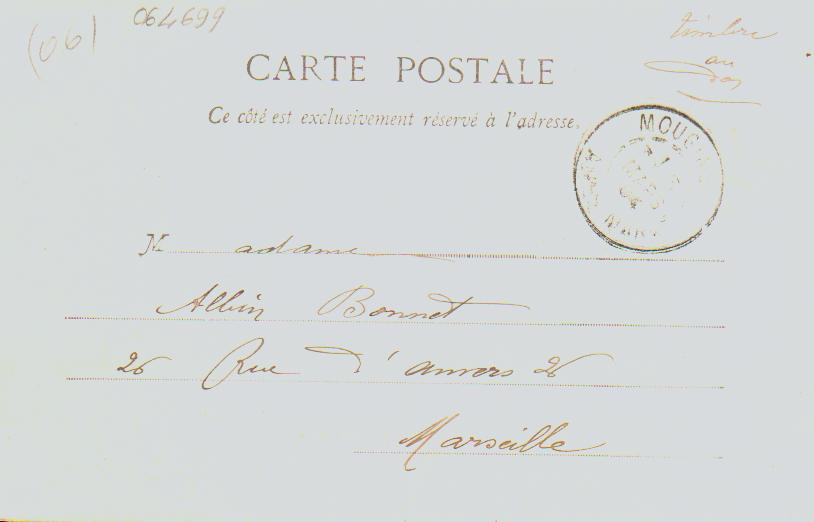 (06)
064699
timbre
au
dos
CARTE POSTALE
Ce côté est exclusivement réservé à l'adresse.
MOUGINS
MARS
04
Madame
Albin Bonnet
26 Rue d'anvers 26
Marseille